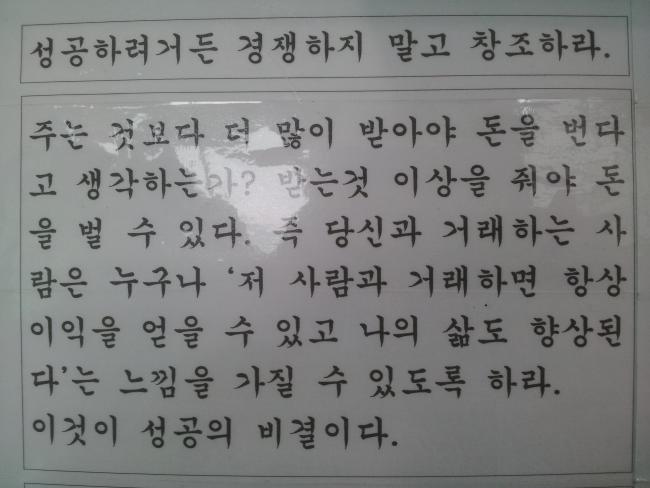 성공하려거든 경쟁하지 말고 창조하라.
주는 것보다 더 많이 받아야 돈을 번다
고 생각하는가? 받는것 이상을 줘야 돈
을 벌 수 있다. 즉 당신과 거래하는 사
람은 누구나 ‘저 사람과 거래하면 항상
이익을 얻을 수 있고 나의 삶도 향상된
다’는 느낌을 가질 수 있도록 하라.
이것이 성공의 비결이다.